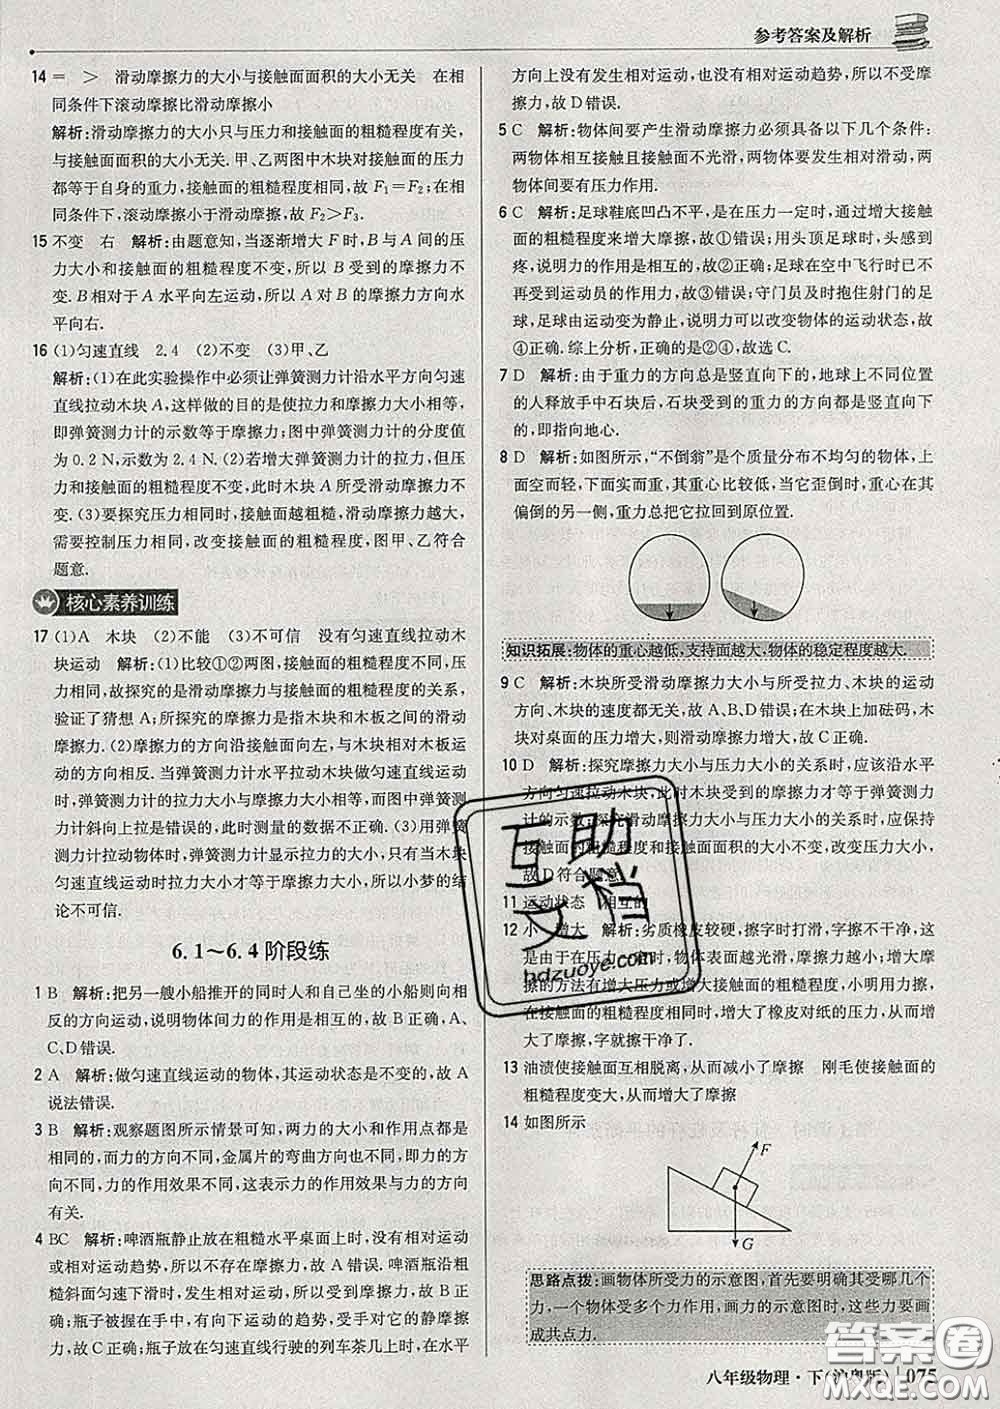 参考答案及解析
14 = > 滑动摩擦力的大小与接触面面积的大小无关 在相
同条件下滚动摩擦比滑动摩擦小
解析:滑动摩擦力的大小只与压力和接触面的粗糙程度有关,
与接触面面积的大小无关.甲、乙两图中木块对接触面的压力
都等于自身的重力,接触面的粗糙程度相同,故 F₁=F₂;在相
同条件下,滚动摩擦小于滑动摩擦,故 F₂>F₃.
15 不变 右 解析:由题意知,当逐渐增大 F 时,B 与 A 间的压
力大小和接触面的粗糙程度不变,所以 B 受到的摩擦力不
变.B 相对于 A 水平向左运动,所以 A 对 B 的摩擦力方向水
平向右.
16 (1)匀速直线 2.4 (2)不变 (3)甲、乙
解析:(1)在此实验操作中必须让弹簧测力计沿水平方向匀速
直线拉动木块 A,这样做的目的是使拉力和摩擦力大小相等,
即弹簧测力计的示数等于摩擦力;图中弹簧测力计的分度值
为 0.2 N,示数为 2.4 N.(2)若增大弹簧测力计的拉力,但压
力和接触面的粗糙程度不变,此时木块 A 所受滑动摩擦力不
变.(3)要探究压力相同时,接触面越粗糙,滑动摩擦力越大,
需要控制压力相同,改变接触面的粗糙程度,图甲、乙符合
题意.
核心素养训练
17 (1)A 木块 (2)不能 (3)不可信 没有匀速直线拉动木
块运动 解析:(1)比较①②两图,接触面的粗糙程度不同,压
力相同,故探究的是滑动摩擦力与接触面粗糙程度的关系,
验证了猜想 A;所探究的摩擦力是指木块和木板之间的滑动
摩擦力.(2)摩擦力的方向沿接触面向左,与木块相对木板运
动的方向相反.当弹簧测力计水平拉动木块做匀速直线运动
时,弹簧测力计的拉力大小与摩擦力大小相等,所以弹簧测力
计斜向上拉是错误的,此时测量的数据不正确.(3)用弹簧
测力计拉动物体时,弹簧测力计显示拉力的大小,只有当木块
匀速直线运动时拉力大小才等于摩擦力大小,所以小梦的结
论不可信.
6.1～6.4 阶段练
1 B 解析:把另一艘小船推开的同时人和自己坐的小船则向相
反的方向运动,说明物体间力的作用是相互的,故 B 正确,A、
C、D 错误.
2 A 解析:做匀速直线运动的物体,其运动状态是不变的,故 A
说法错误.
3 B 解析:观察题图所示情景可知,两力的大小和作用点都是
相同的,而力的方向不同,金属片的弯曲方向不同,即力的方
向不同,力的作用效果不同,这表示力的作用效果与力的方向
有关.
4 BC 解析:啤酒瓶静止放在粗糙水平桌面上时,没有相对运动
或相对运动趋势,所以不存在摩擦力,故 A 错误.啤酒瓶沿粗
糙斜面匀速下滑时,与斜面发生相对运动,所以存在摩擦力,
故 B 正确;瓶子被握在手中,有向下运动的趋势,受手对它的静摩擦力,
故 C 正确;瓶子放在匀速直线行驶的列车茶几上,水平
方向上没有发生相对运动,也没有相对运动趋势,所以不受摩
擦力,故 D 错误.
5 C 解析:物体间要产生滑动摩擦力必须具备以下几个条件:
两物体相互接触且接触面不光滑,两物体要发生相对滑动,两
物体间要有压力作用.
6 C 解析:足球鞋底凹凸不平,是在压力一定时,通过增大接触
面的粗糙程度来增大摩擦,故①错误;用头顶足球时,头感到
疼,说明力的作用是相互的,故②正确;足球在空中飞行时已不
再受到运动员的作用力,故③错误;守门员及时抱住射门的足
球,足球由运动变为静止,说明力可以改变物体的运动状态,故
④正确.综上分析,正确的是②④,故选 C.
7 D 解析:由于重力的方向总是竖直向下的,地球上不同位置
的人释放手中石块后,石块受到的重力的方向都是竖直向下
的,即指向地心.
8 D 解析:如图所示,“不倒翁”是个质量分布不均匀的物体,上
面空而轻,下面实而重,其重心比较低,当它歪倒时,重心在其
偏倒的另一侧,重力总把它拉回到原位置.
知识拓展:物体的重心越低,支持面越大,物体的稳定程度越大.
9 C 解析:木块所受滑动摩擦力大小与所受拉力、木块的运动
方向、木块的速度都无关,故 A、B、D 错误;在木块上加砝码,木
块对桌面的压力增大,则滑动摩擦力增大,故 C 正确.
10 D 解析:探究摩擦力大小与压力大小的关系时,应该沿水平
方向匀速拉动木块,此时对木块的拉力才等于弹簧测力
计的示数;探究滑动摩擦力大小与压力大小的关系时,应保持
接触面的粗糙程度和接触面面积的大小不变,改变压力大小,
故 D 符合题意.
11 运动状态 相互的
12 小 增大 解析:劣质橡皮较硬,擦字时打滑,字擦不干净,这
是由于在压力一定时,物体表面越光滑,摩擦力越小.增大摩
擦的方法有增大压力或增大接触面粗糙程度,小明用力擦,在
接触面的粗糙程度相同时,增大了橡皮对纸的压力,从而增大
了摩擦,字就擦干净了.
13 油渍使接触面互相脱离,从而减小了摩擦 刚毛使接触面的
粗糙程度变大,从而增大了摩擦
14 如图所示
F
G
思路点拨:画物体所受力的示意图,首先要明确其受哪几个
力,一个物体受多个力作用,画力的示意图时,这些力要画
成共点力.
互助
文档
hdzuoye.com
答案圈
MXQE.COM
八年级物理·下(沪粤版) 075